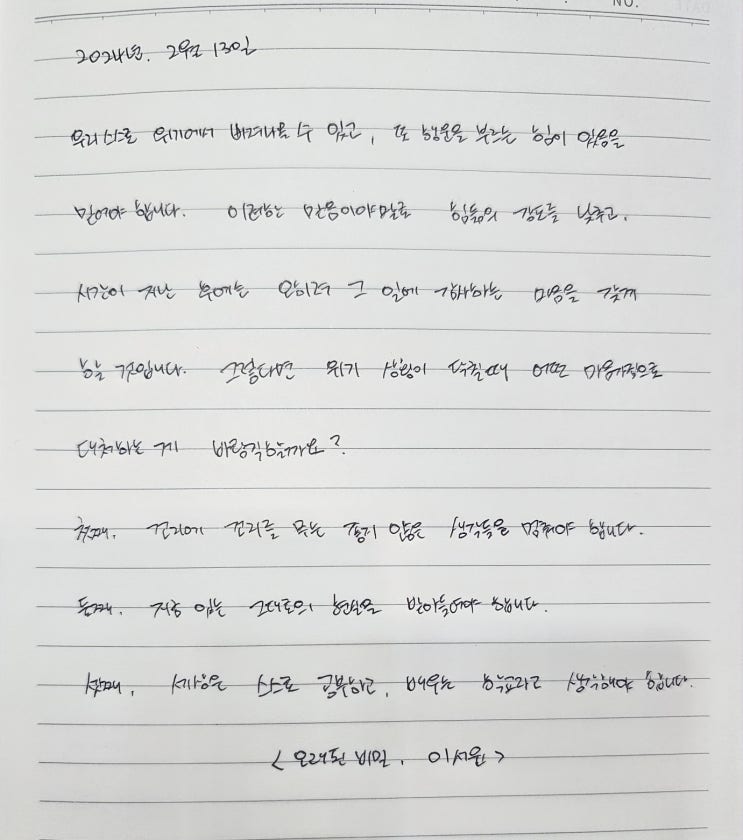 NO.
2024년. 2월 13일
우리 스스로 위기에서 벗어나올 수 있고, 또 행운을 부르는 힘이 있음을
믿어야 합니다. 이러하는 믿음이야말로 힘듦의 강도를 낮추고,
시간이 지난 후에는 오히려 그 일에 감사하는 마음을 갖게
할 것입니다. 그렇다면 위기 상황이 닥칠때 어떤 마음가짐으로
대처하는 게 바람직할까요?
첫째, 꼬리에 꼬리를 무는 좋지 않은 생각들을 멈춰야 합니다.
둘째, 지금 있는 그대로의 현실을 받아들여야 합니다.
셋째, 세상은 스스로 공부하고, 배우는 학교라고 생각해야 합니다.
< 오래된 비밀, 이서윤 >